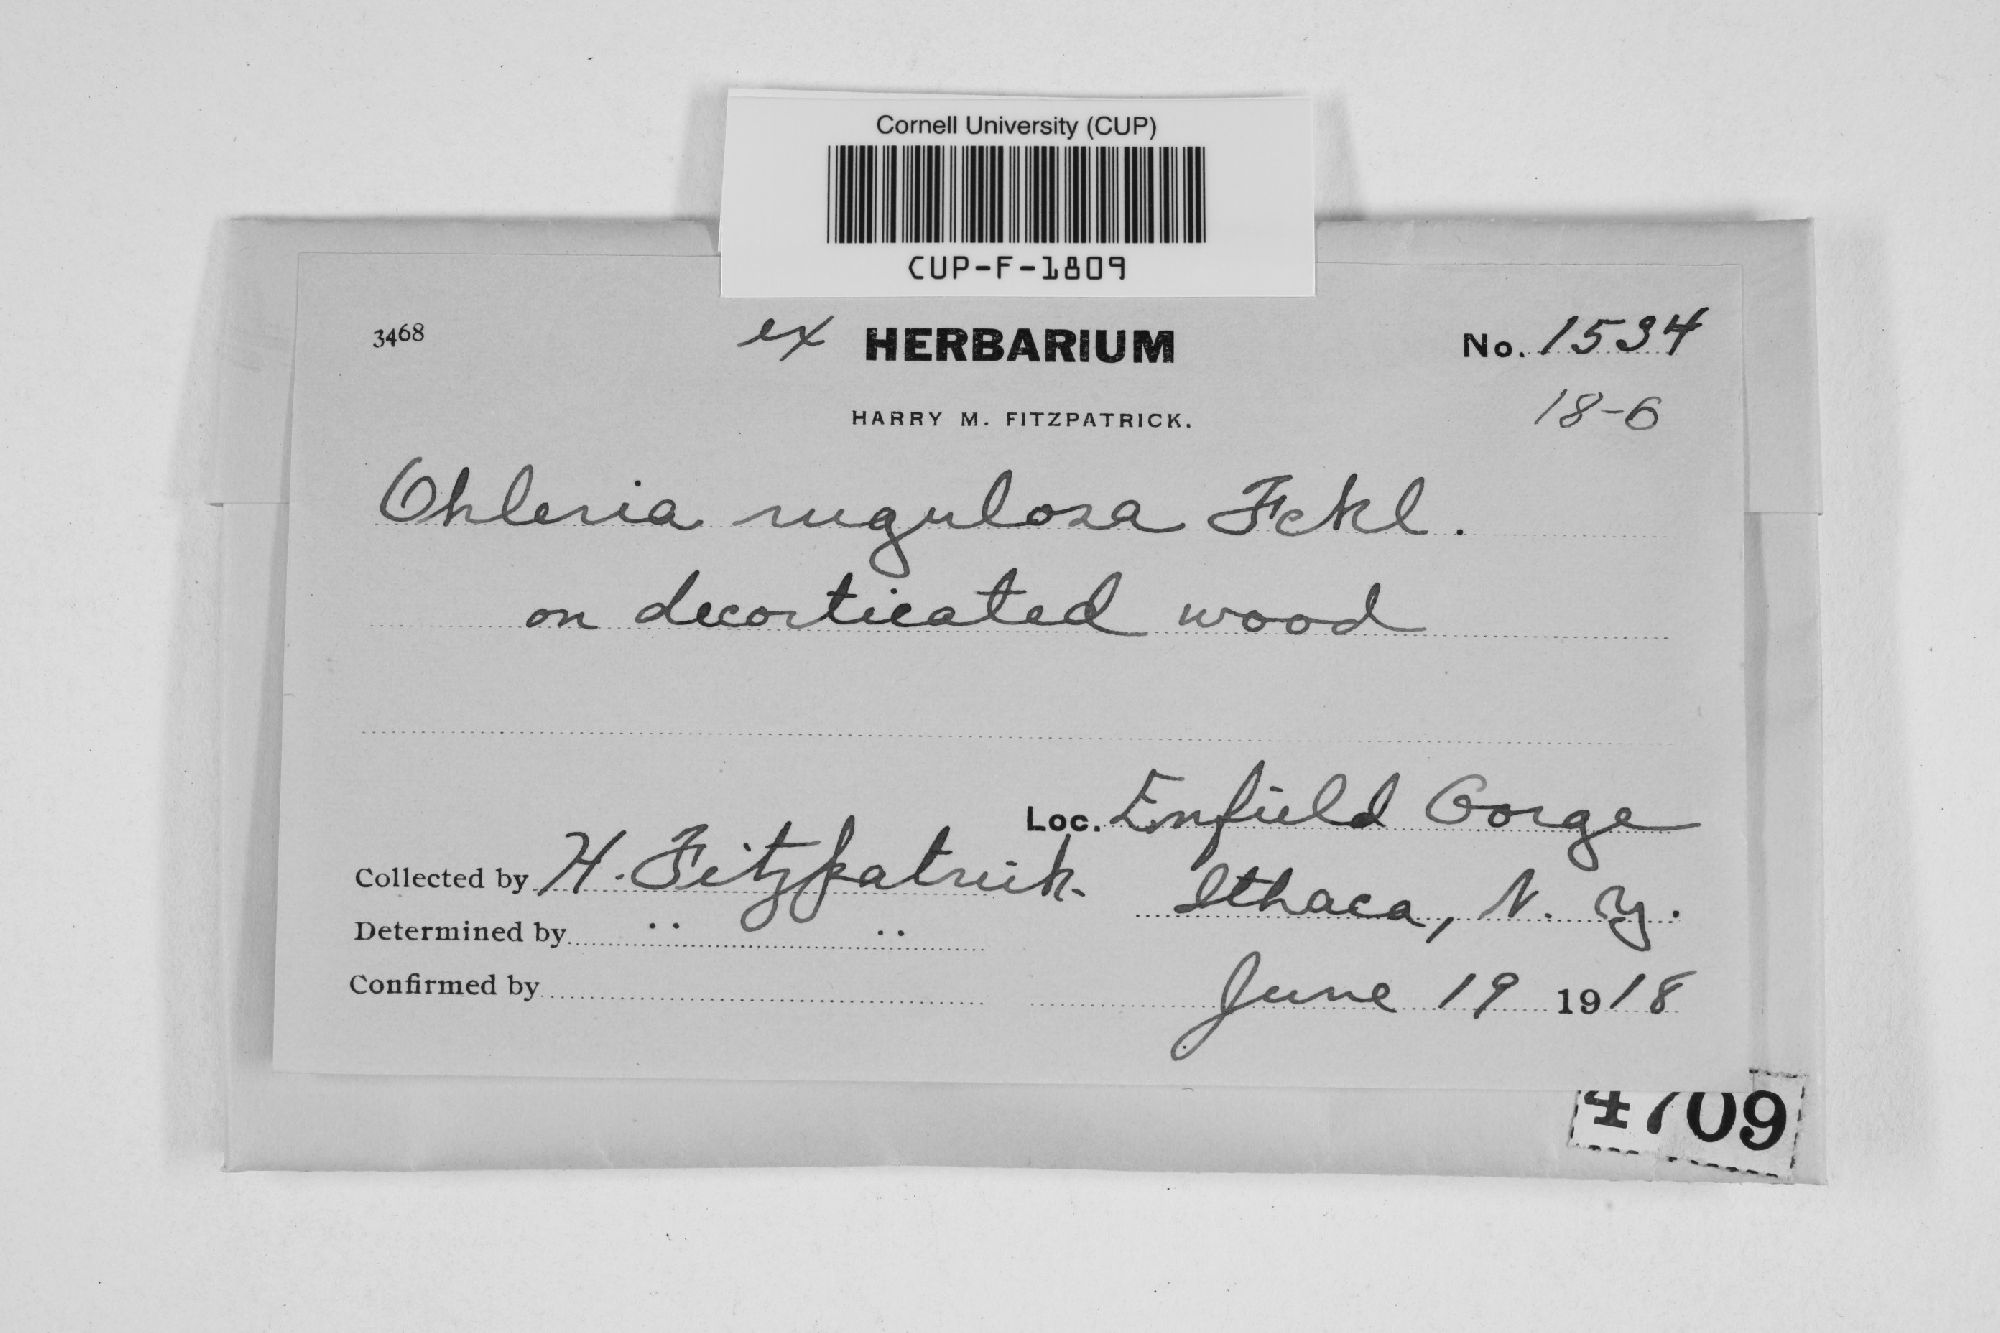 Cornell University (CUP)
CUP-F-1809
3468
ex HERBARIUM
No. 1534
HARRY M. FITZPATRICK.
18-6
Ohleria rugulosa Fckl.
on decorticated wood
Loc. Enfield Gorge
Collected by H. Fitzpatrick.
Ithaca, N. Y.
Determined by " "
Confirmed by
June 19 1918
4709